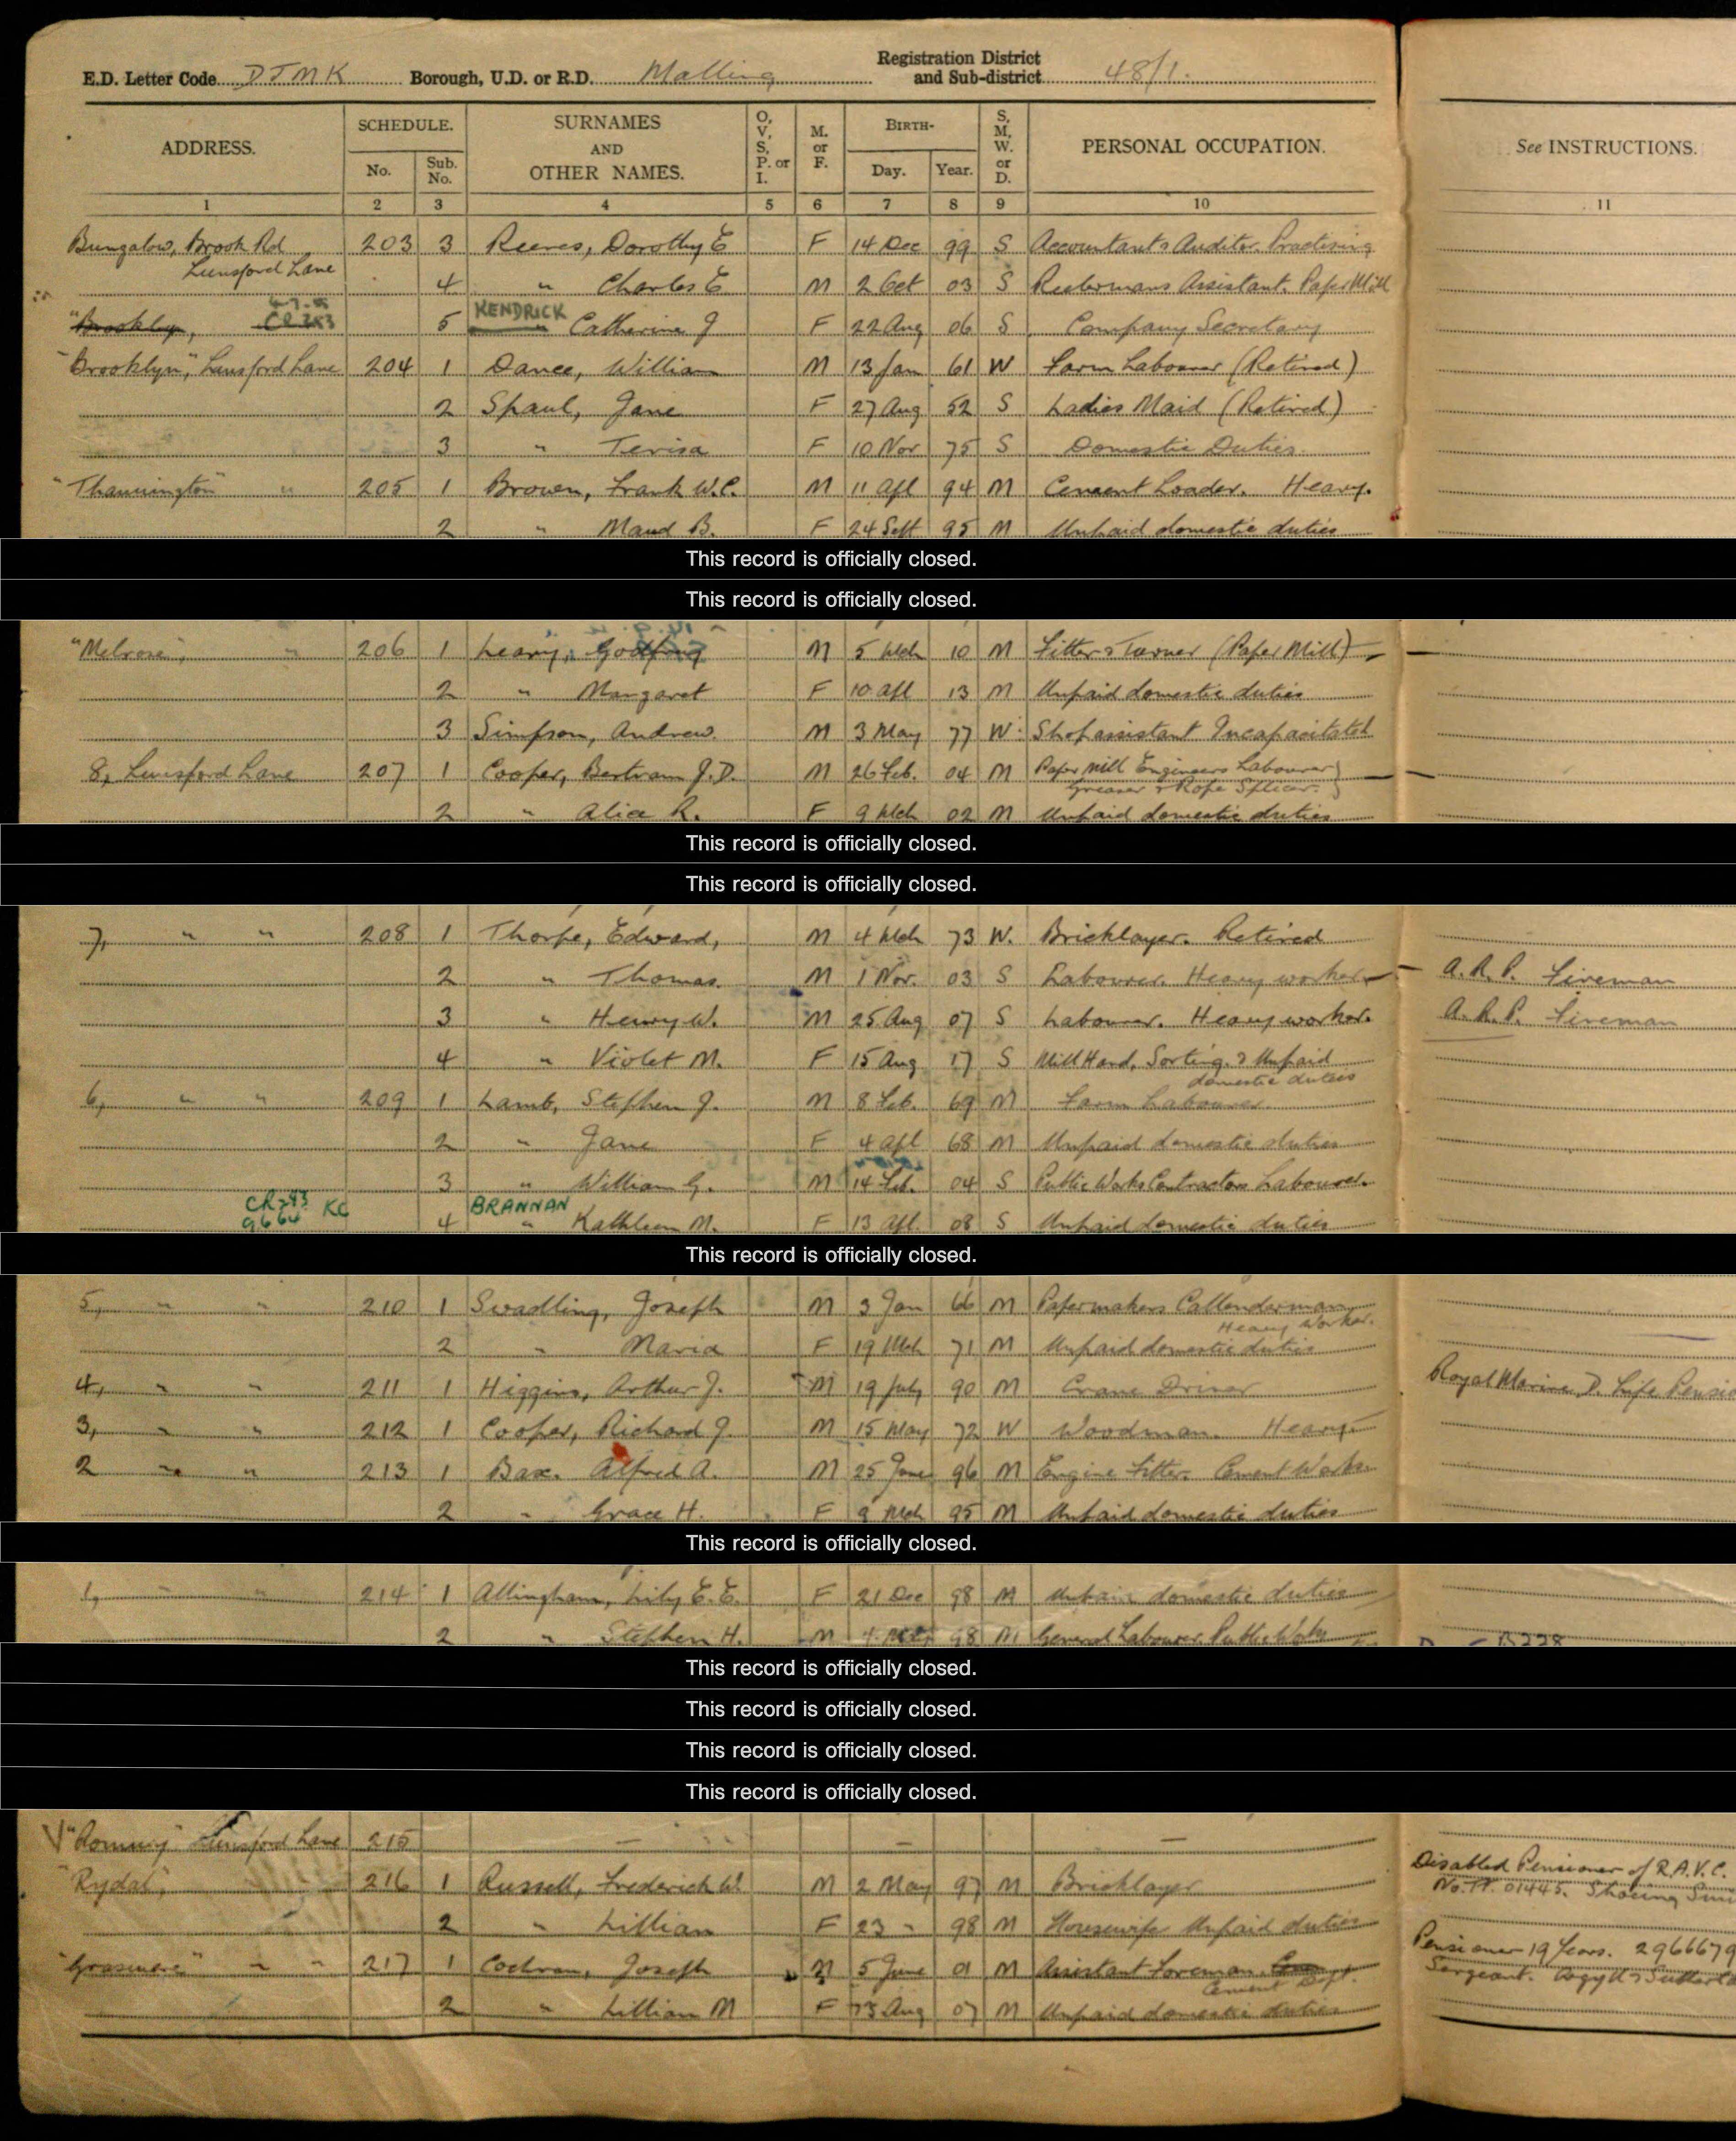 E.D. Letter Code DJMK Borough, U.D. or R.D. Malling Registration District and Sub-district 48/1.
ADDRESS. SCHEDULE. No. Sub. No. SURNAMES AND OTHER NAMES. O, V, S, P. or I. M. or F. BIRTH- Day. Year. S, M, W. or D. PERSONAL OCCUPATION. See INSTRUCTIONS.
1 2 3 4 5 6 7 8 9 10 11
Bungalow, Brook Rd 203 3 Reeves, Dorothy E F 14 Dec 99 S Accountant & Auditor Practising
Lunsford Lane
4 " Charles E M 2 Oct 03 S Assistant. Paper Mill
"Brooklyn, CR283 5 KENDRICK " Catherine J F 22 Aug 06 S Company Secretary
"Brooklyn", Lunsford Lane 204 1 Dance, William M 13 Jan 61 W Farm Labourer (Retired)
2 Spaul, Jane F 27 Aug 52 S Ladies Maid (Retired)
3 " Terisa F 10 Nov 75 S Domestic Duties.
"Thannington" " 205 1 Brown, Frank W.C. M 11 Apl 94 M Cement Loader. Heavy.
2 " Maud B. F 24 Sept 95 M Unpaid domestic duties
This record is officially closed.
This record is officially closed.
"Melrose", " 206 1 Leary, Godfrey M 5 Mch 10 M Fitter & Turner (Paper Mill)
2 " Margaret F 10 Apl 13 M Unpaid domestic duties
3 Simpson, Andrew. M 3 May 77 W Shop assistant Incapacitated
8, Lunsford Lane 207 1 Cooper, Bertram J.D. M 26 Feb. 04 M Paper Mill Engineers Labourer
Greaser & Rope Splicer.
2 " Alice R. F 9 Mch 02 M Unpaid domestic duties
This record is officially closed.
This record is officially closed.
7, " " 208 1 Thorpe, Edward, M 4 Mch 73 W. Bricklayer. Retired
2 " Thomas. M 1 Nov. 03 S Labourer. Heavy worker A.R.P. Fireman
3 " Henry W. M 25 Aug 07 S Labourer. Heavy worker. A.R.P. Fireman
4 " Violet M. F 15 Aug 17 S Mill Hand, Sorting. & Unpaid
domestic duties
6, " " 209 1 Lamb, Stephen J. M 8 Feb. 69 M Farm Labourer.
2 " Jane F 4 Apl 68 M Unpaid domestic duties
3 " William G. M 14 Feb. 04 S Public Works Contractors Labourer.
CR283 9664 KC 4 BRANNAN " Kathleen M. F 13 Apl. 08 S Unpaid domestic duties
This record is officially closed.
5, " " 210 1 Swadling, Joseph M 3 Jan 66 M Papermakers Callenderman
Heavy Worker.
2 " Maria F 19 Mch 71 M Unpaid domestic duties
4, " " 211 1 Higgins, Arthur J. M 19 July 90 M Crane Driver Royal Marine Life Pensio
3, " 212 1 Cooper, Richard J. M 15 May 72 W Woodman. Heavy
2 " " 213 1 Bax. Alfred A. M 25 June 96 M Engine Fitter. Cement Works.
2 " Grace H. F 9 Mch 95 M Unpaid domestic duties
This record is officially closed.
1, " " 214 1 Allingham, Lily E.E. F 21 Dec 98 M Unpaid domestic duties
2 " Stephen H. M 4 98 M General Labourer Public Works B228
This record is officially closed.
This record is officially closed.
This record is officially closed.
This record is officially closed.
"Romney" Lunsford Lane 215 — — —
"Rydal", 216 1 Russell, Frederick W. M 2 May 97 M Bricklayer Disabled Pensioner of R.A.V.C.
No. 01445. Shoeing
2 " Lillian F 23 " 98 M Housewife Unpaid duties
"Grasmere" " " 217 1 Cochran, Joseph M 5 June 01 M Assistant Foreman. Pensioner 19 Years. 2966679
Cement Dept. Sergeant. Argyll & Sutherl
2 " Lillian M F 13 Aug 07 M Unpaid domestic duties